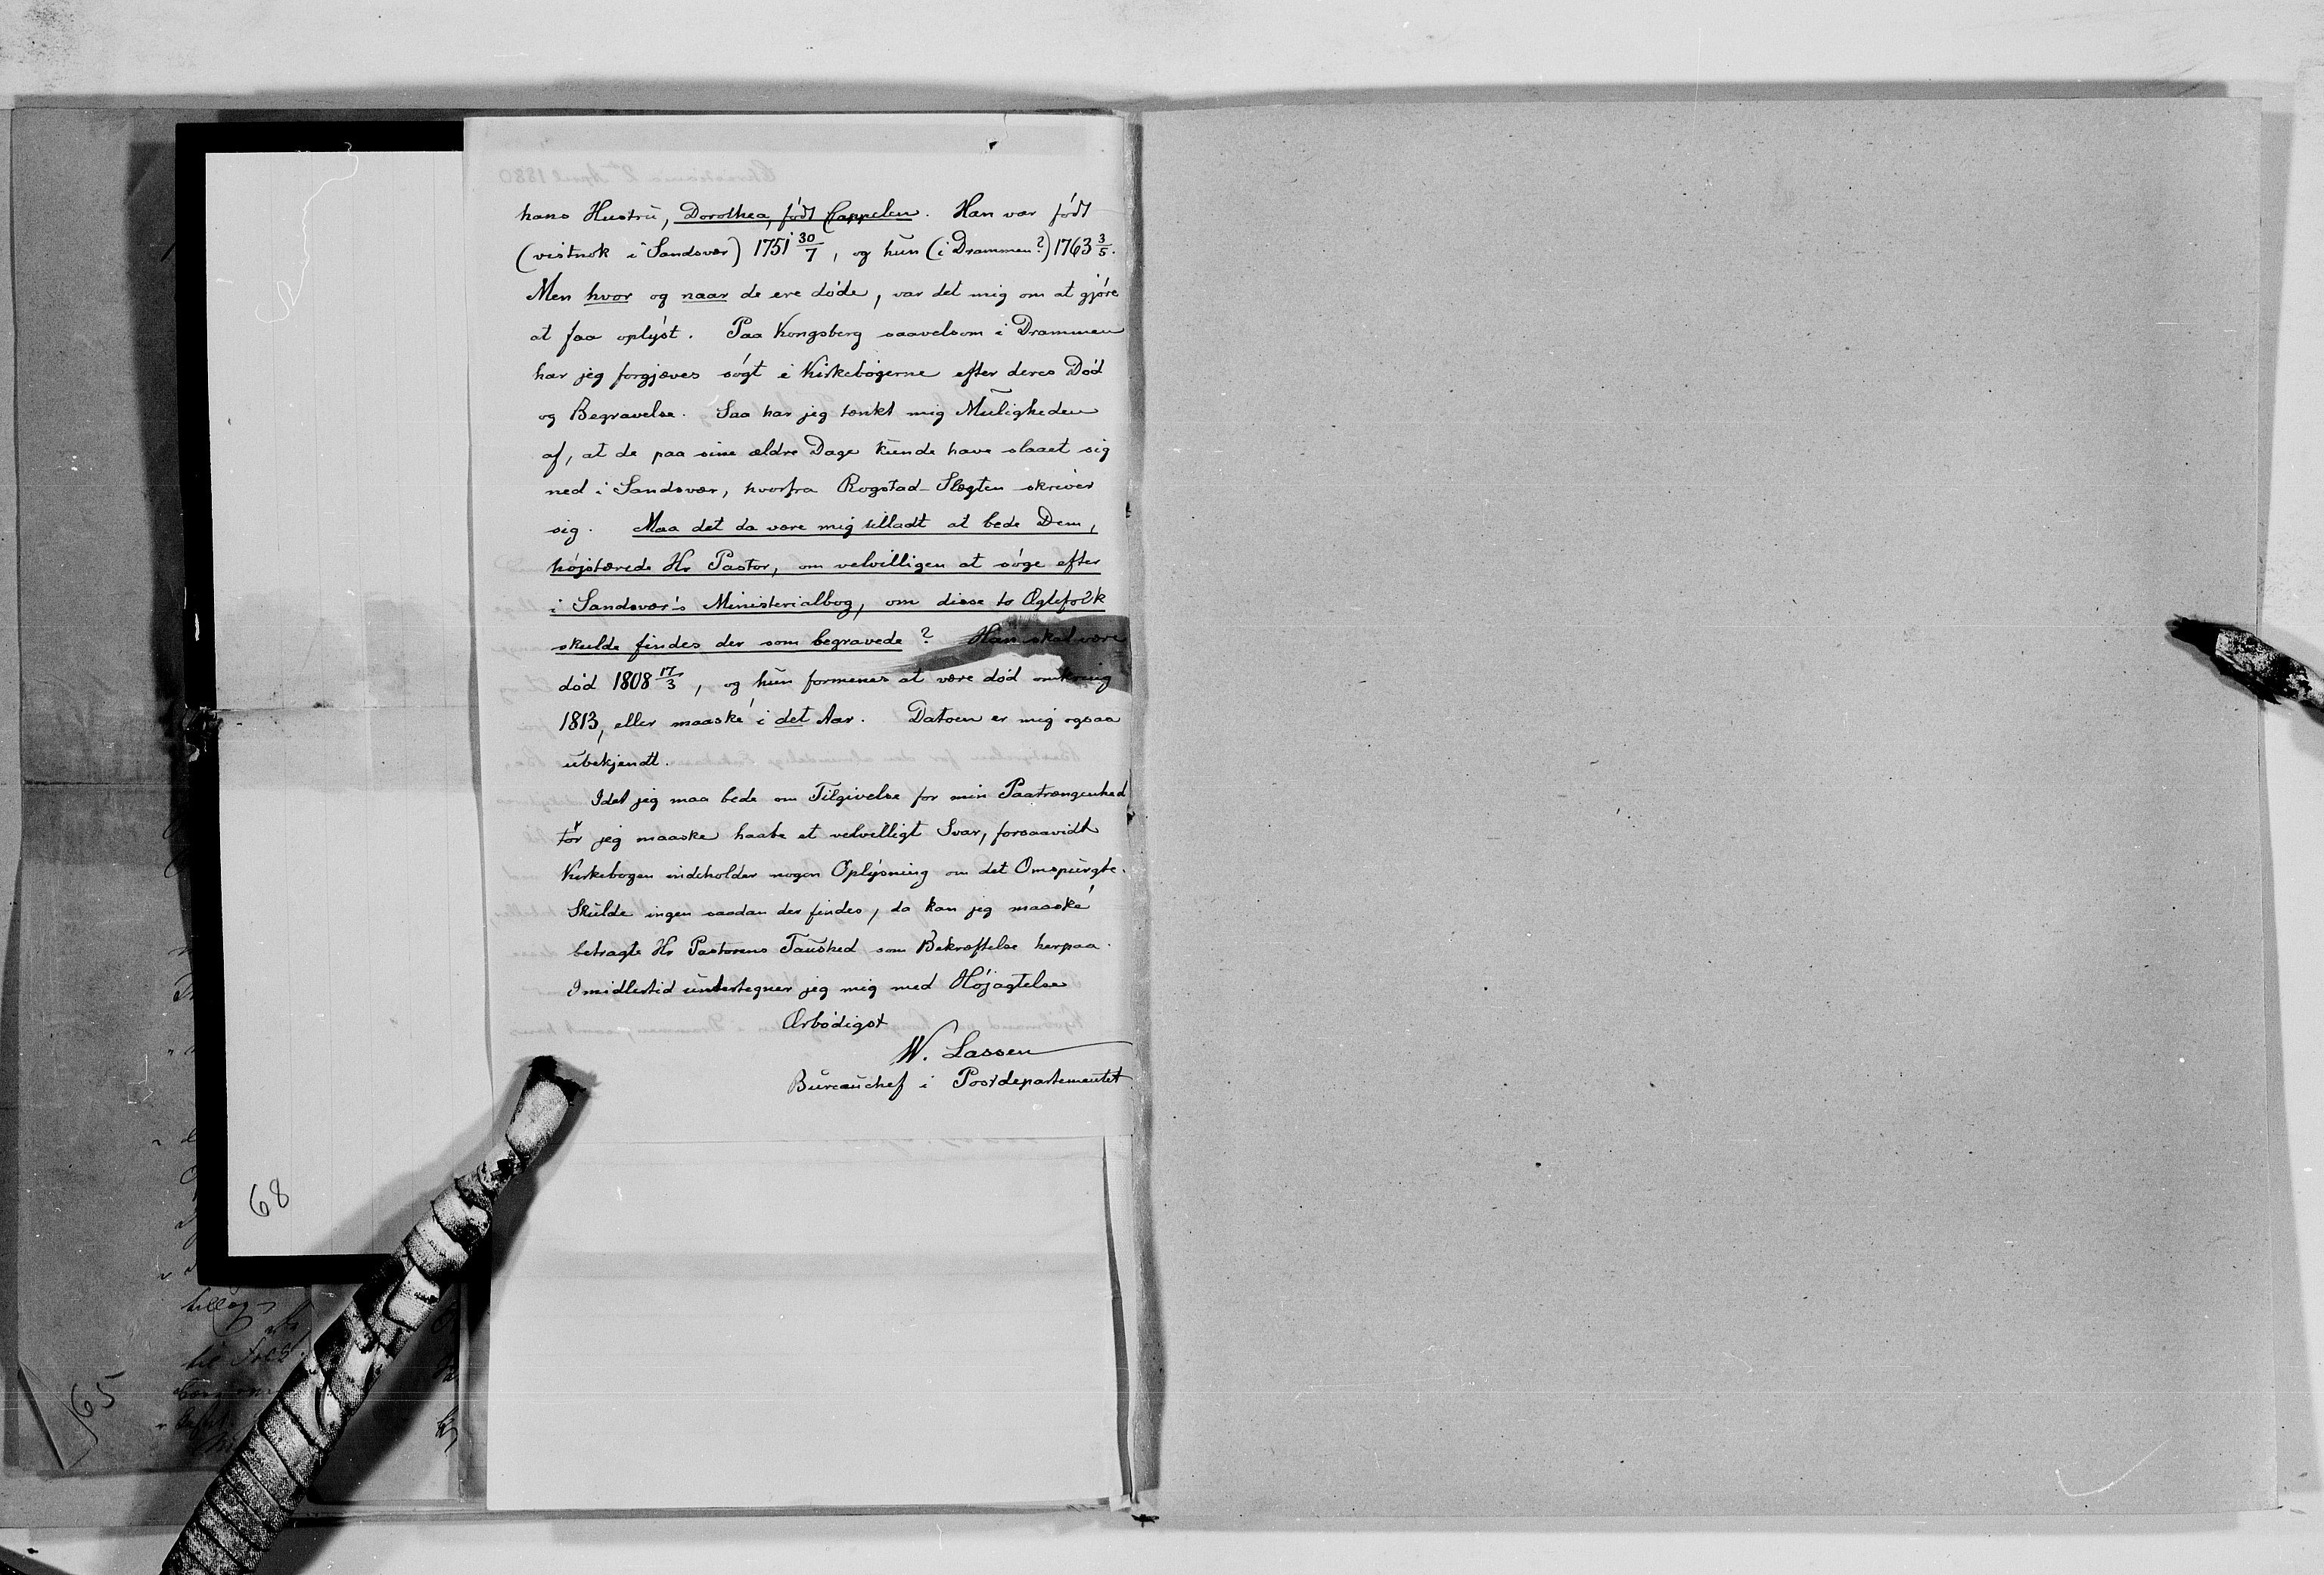 hans Hustrü, Dorothea, født Cappelen. Han var født
(vistnok i Sandsvær) 1751 30/7, og hün (i Drammen?) 1763 3/5.
Men hvor og naar de ere døde, var det mig om at gjøre
at faa oplyst. Paa Kongsberg saavelsom i Drammen
har jeg forgjæves søgt i Kirkebøgerne efter deres Død
og Begravelse. Saa har jeg tænkt mig Müligheden
af, at de paa sine ældre Dage künde have slaaet sig
ned i Sandsvær, hvorfra Rogstad-Slægten skriver
sig. Maa det da være mig tilladt at bede Dem,
højstærede Hr Pastor, om velvilligen at søge efter
i Sandsvær's Ministerialbog, om disse to Ægtefolk
skulde findes der som begravede? Han skal være
død 1808 17/3, og hün formenes at være død omkring
1813, eller maaske i det Aar. Datoen er mig ogsaa
übekjendt.
Idet jeg maa bede om Tilgivelse for min Paatrængenhed
tør jeg maaske haabe et velvilligt Svar, forsaavidt
Kirkebogen indeholder nogen Oplysning om det Omspürgte.
Skülde ingen saadan der findes, da kan jeg maaske
betragte Hr Pastorens Taüshed som Bekræftelse herpaa.
Imidlertid üntertegner jeg mig med Højagtelse
Ærbødigst
W. Lassen
Büreaüchef i Postdepartementet
68
65